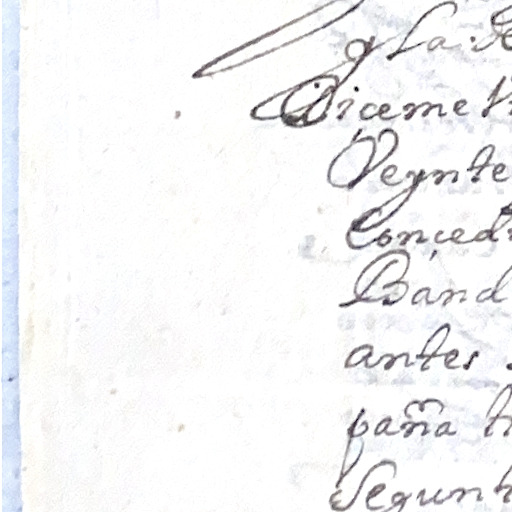 y La de
Diceme V
Veynte
Conçed
Band
antes
pañia t
Segunt